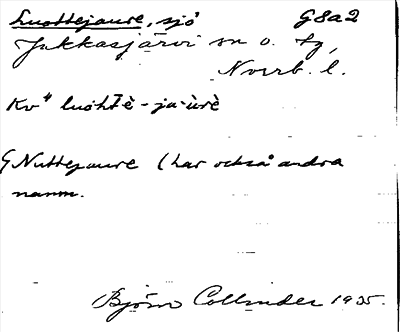 Luottejaure, sjö G8a2
Jukkasjärvi sn o. tg,
Norrb. l.
Kv" luoht̄è-ja·ùrè
G Nuttejaure (har också andra
namn.
Björn Collinder 1935.